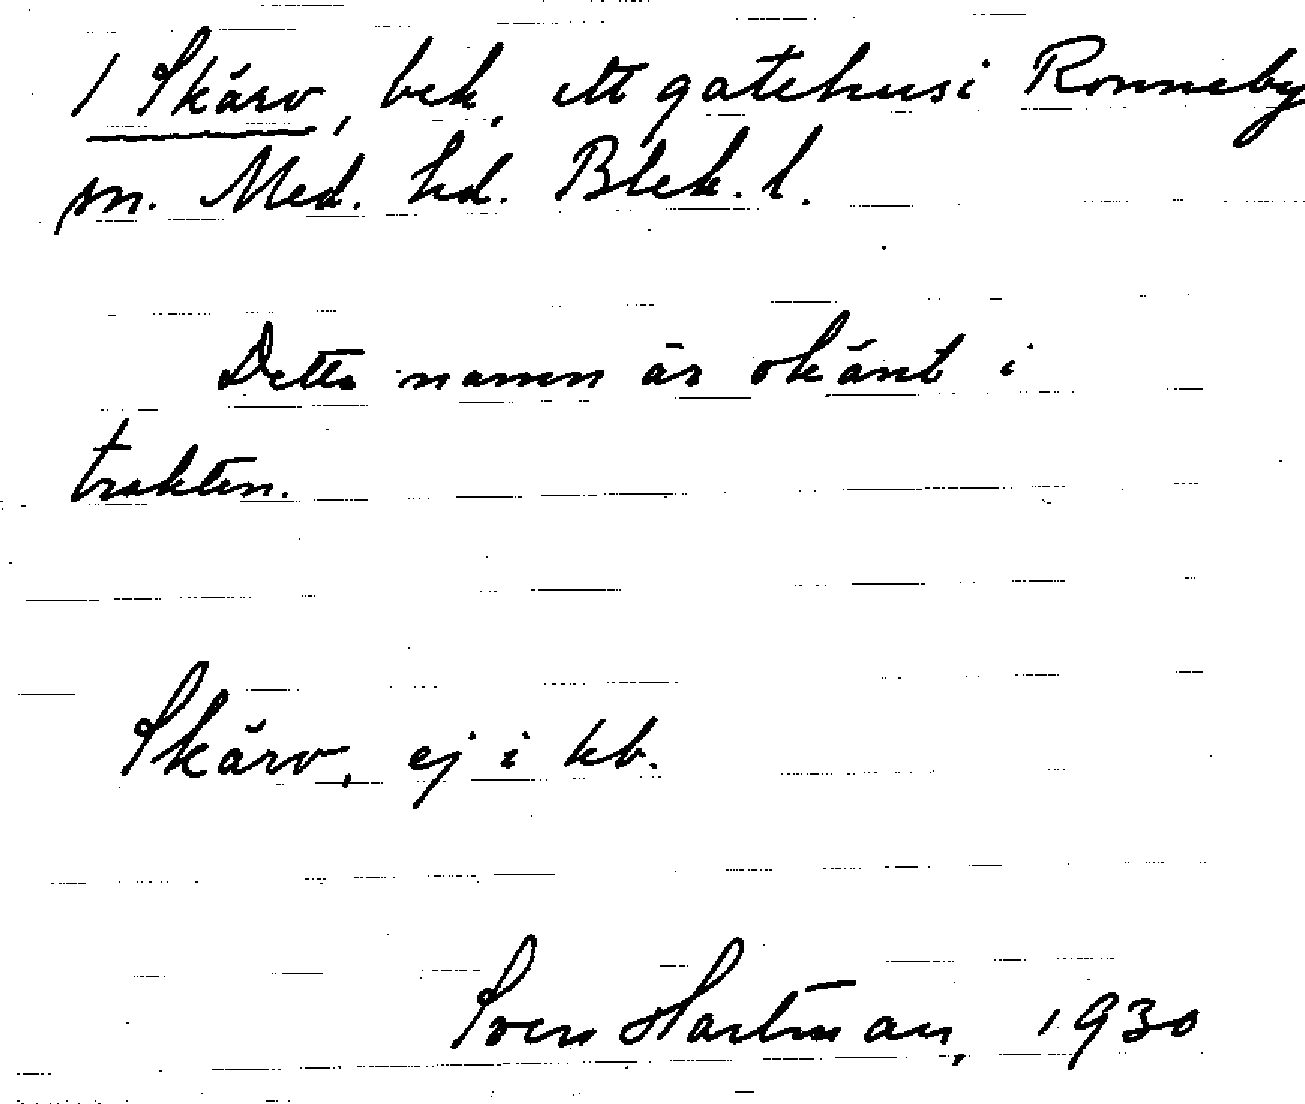 1 Skärv, bek. ett gatehus i Ronneby
sn. Med. hd. Blek. l.
Detta namn är okänt i
trakten.
Skärv, ej i kb.
Sven Hartman, 1930